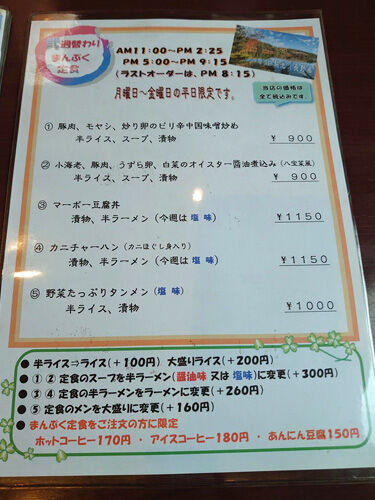 週替わり
まんぷく
定食
AM11:00～PM 2:25
PM 5:00～PM 9:15
(ラストオーダーは、PM 8:15)
月曜日～金曜日の平日限定です。
当店の価格は
全て税込みです。
① 豚肉、モヤシ、炒り卵のピリ辛中国味噌炒め
半ライス、スープ、漬物 ¥ 900
② 小海老、豚肉、うずら卵、白菜のオイスター醤油煮込み (八宝菜風)
半ライス、スープ、漬物 ¥ 900
③ マーボー豆腐丼
漬物、半ラーメン (今週は 塩味) ¥1150
④ カニチャーハン (カニほぐし身入り)
漬物、半ラーメン (今週は 塩味) ¥1150
⑤ 野菜たっぷりタンメン (塩 味)
半ライス、漬物 ¥1000
● 半ライス⇒ライス(+100円) 大盛りライス(+200円)
● ① ② 定食のスープを半ラーメン(醤油味 又は 塩味)に変更(+300円)
● ③ ④ 定食の半ラーメンをラーメンに変更(+260円)
● ⑤ 定食のメンを大盛りに変更(+160円)
● まんぷく定食をご注文の方に限定
ホットコーヒー170円 ・ アイスコーヒー180円 ・ あんにん豆腐150円